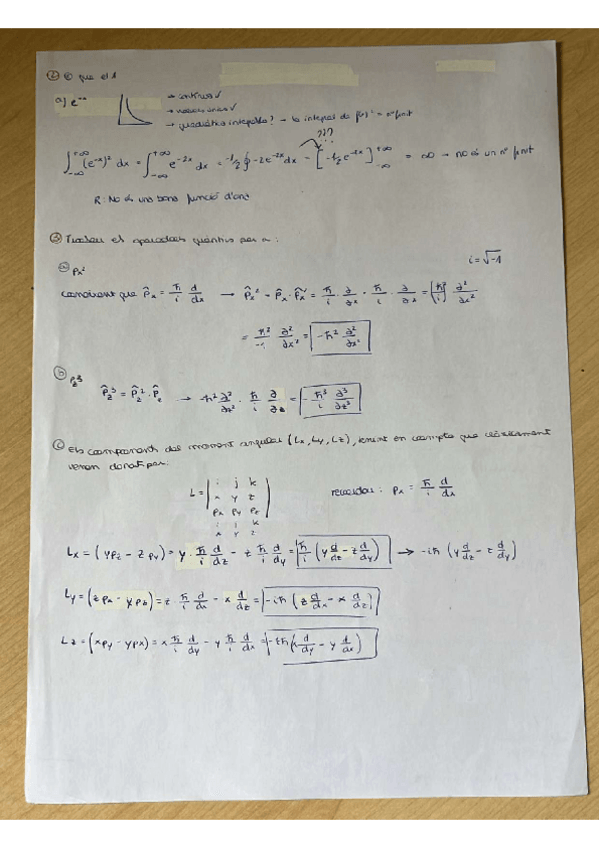 ② que el 1
a) e⁻ˣ → contínua ✓
→ quadràtic integrable? → la integral de
???
∫₋∞⁺∞ (e⁻ˣ)² dx = ∫₋∞⁺∞ e⁻²ˣ dx = -1/2 ∫ -2e⁻²ˣ dx = [-1/2 e⁻²ˣ]₋∞⁺∞ = ∞ → no és un nº finit
R: No és una bona funció d'ona
③ els operadors quàntics per a:
ⓐ Px² i = √-1
que P̂x = ħ/i d/dx → P̂x² = P̂x · P̂x = ħ/i · ∂/∂x · ħ/i · ∂/∂x = (ħ/i)² ∂²/∂x²
= ħ²/-1 ∂²/∂x² = -ħ² ∂²/∂x²
ⓑ Pz³
P̂z³ = P̂z² · P̂z → -ħ² ∂²/∂z² · ħ/i ∂/∂z = -ħ³/i ∂³/∂z³
ⓒ Els components del moment angular (Lx, Ly, Lz), tenint en compte que clàssicament
venen donats per:
L = | i j k
x y z
px py pz |
i j k
x y z
recordau: px = ħ/i d/dx
Lx = (ypz - zpy) = y · ħ/i d/dz - z ħ/i d/dy = ħ/i (y d/dz - z d/dy) → -iħ (y d/dz - z d/dy)
Ly = (zpx - xpz) = z · ħ/i d/dx - x d/dz = -iħ (z d/dx - x d/dz)
Lz = (xpy - ypx) = x ħ/i d/dy - y ħ/i d/dx = -iħ (x d/dy - y d/dx)